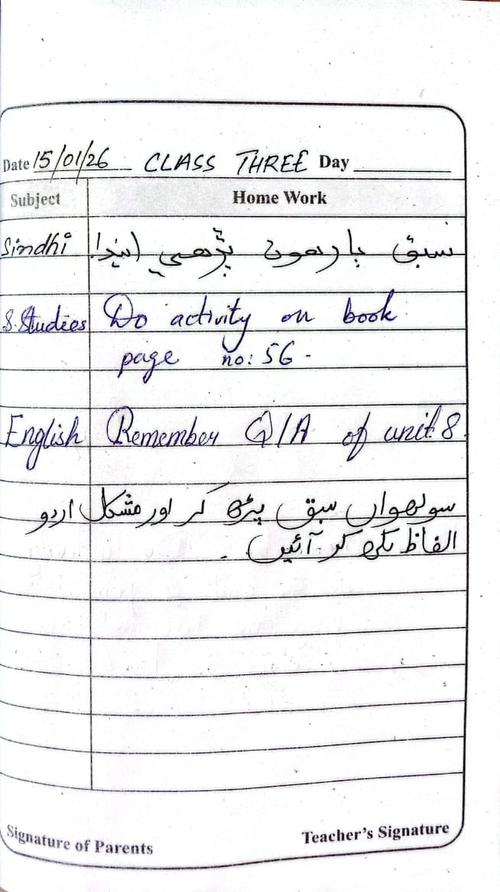 Date 15/01/26 CLASS THREE Day
Subject Home Work
Sindhi سبق بارهون پڙهي ايندا.
S.Studies Do activity on book
page no: 56 -
English Remember Q/A of unit 8.
سولهواں سبق پڑھ کر اور مشکل اردو
الفاظ لکھ کر آئیں۔
Signature of Parents Teacher's Signature